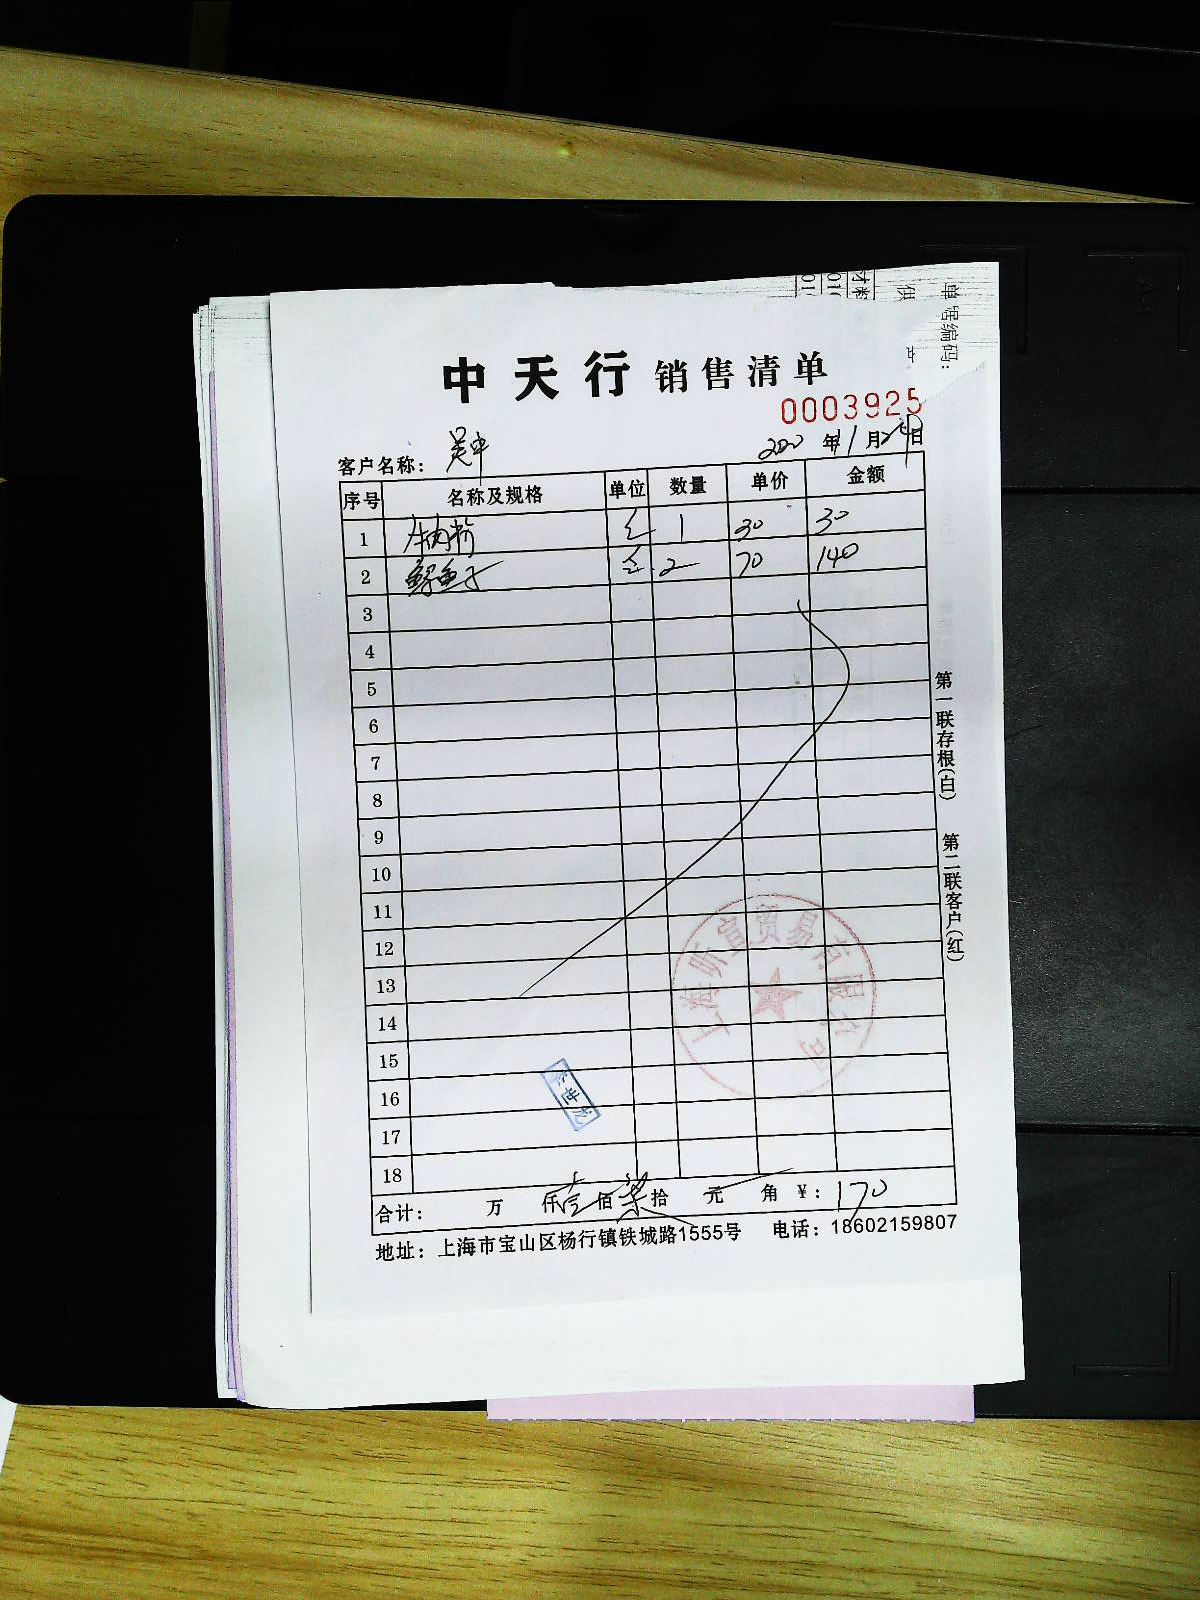 单据编码:
供
中天行 销售清单
0003925
客户名称: 吴中 2020 年 11 月 29 日
序号 名称及规格 单位 数量 单价 金额
1 牛肉粉 1 30 30
2 鲟鱼子 2 70 140
3
4
5
6
7
8
9
10
11
12
13
14
15
16
17
18
合计: 万 仟 壹 佰 柒 拾 元 角 ¥: 170
地址: 上海市宝山区杨行镇铁城路1555号 电话: 18602159807
第一联存根(白) 第二联客户(红)
上海昕宣贸易有限公司
李世龙